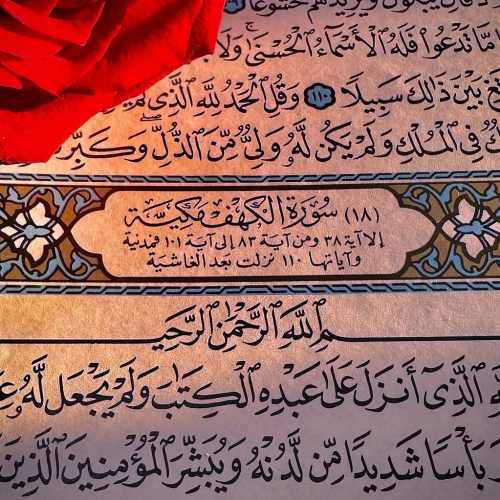 يَبْكُونَ وَيَزِيدُهُمْ خُشُوعًا
مَّا تَدْعُوا۟ فَلَهُ ٱلْأَسْمَآءُ ٱلْحُسْنَىٰ وَلَا
بَيْنَ ذَٰلِكَ سَبِيلًا ١١٠ وَقُلِ ٱلْحَمْدُ لِلَّهِ ٱلَّذِى لَمْ
فِى ٱلْمُلْكِ وَلَمْ يَكُن لَّهُۥ وَلِىٌّ مِّنَ ٱلذُّلِّ وَكَبِّرْ
(١٨) سُورَةُ الْكَهْفِ مَكِّيَّة
إلا آية ٣٨ ومن آية ٨٣ إلى آية ١٠١ فمدنية
وآياتها ١١٠ نزلت بعد الغاشية
ٱللَّهِ ٱلرَّحْمَٰنِ
ٱلَّذِىٓ أَنزَلَ عَلَىٰ عَبْدِهِ ٱلْكِتَٰبَ وَلَمْ يَجْعَل لَّهُۥ
بَأْسًا شَدِيدًا مِّن لَّدُنْهُ وَيُبَشِّرَ ٱلْمُؤْمِنِينَ ٱلَّذِينَ